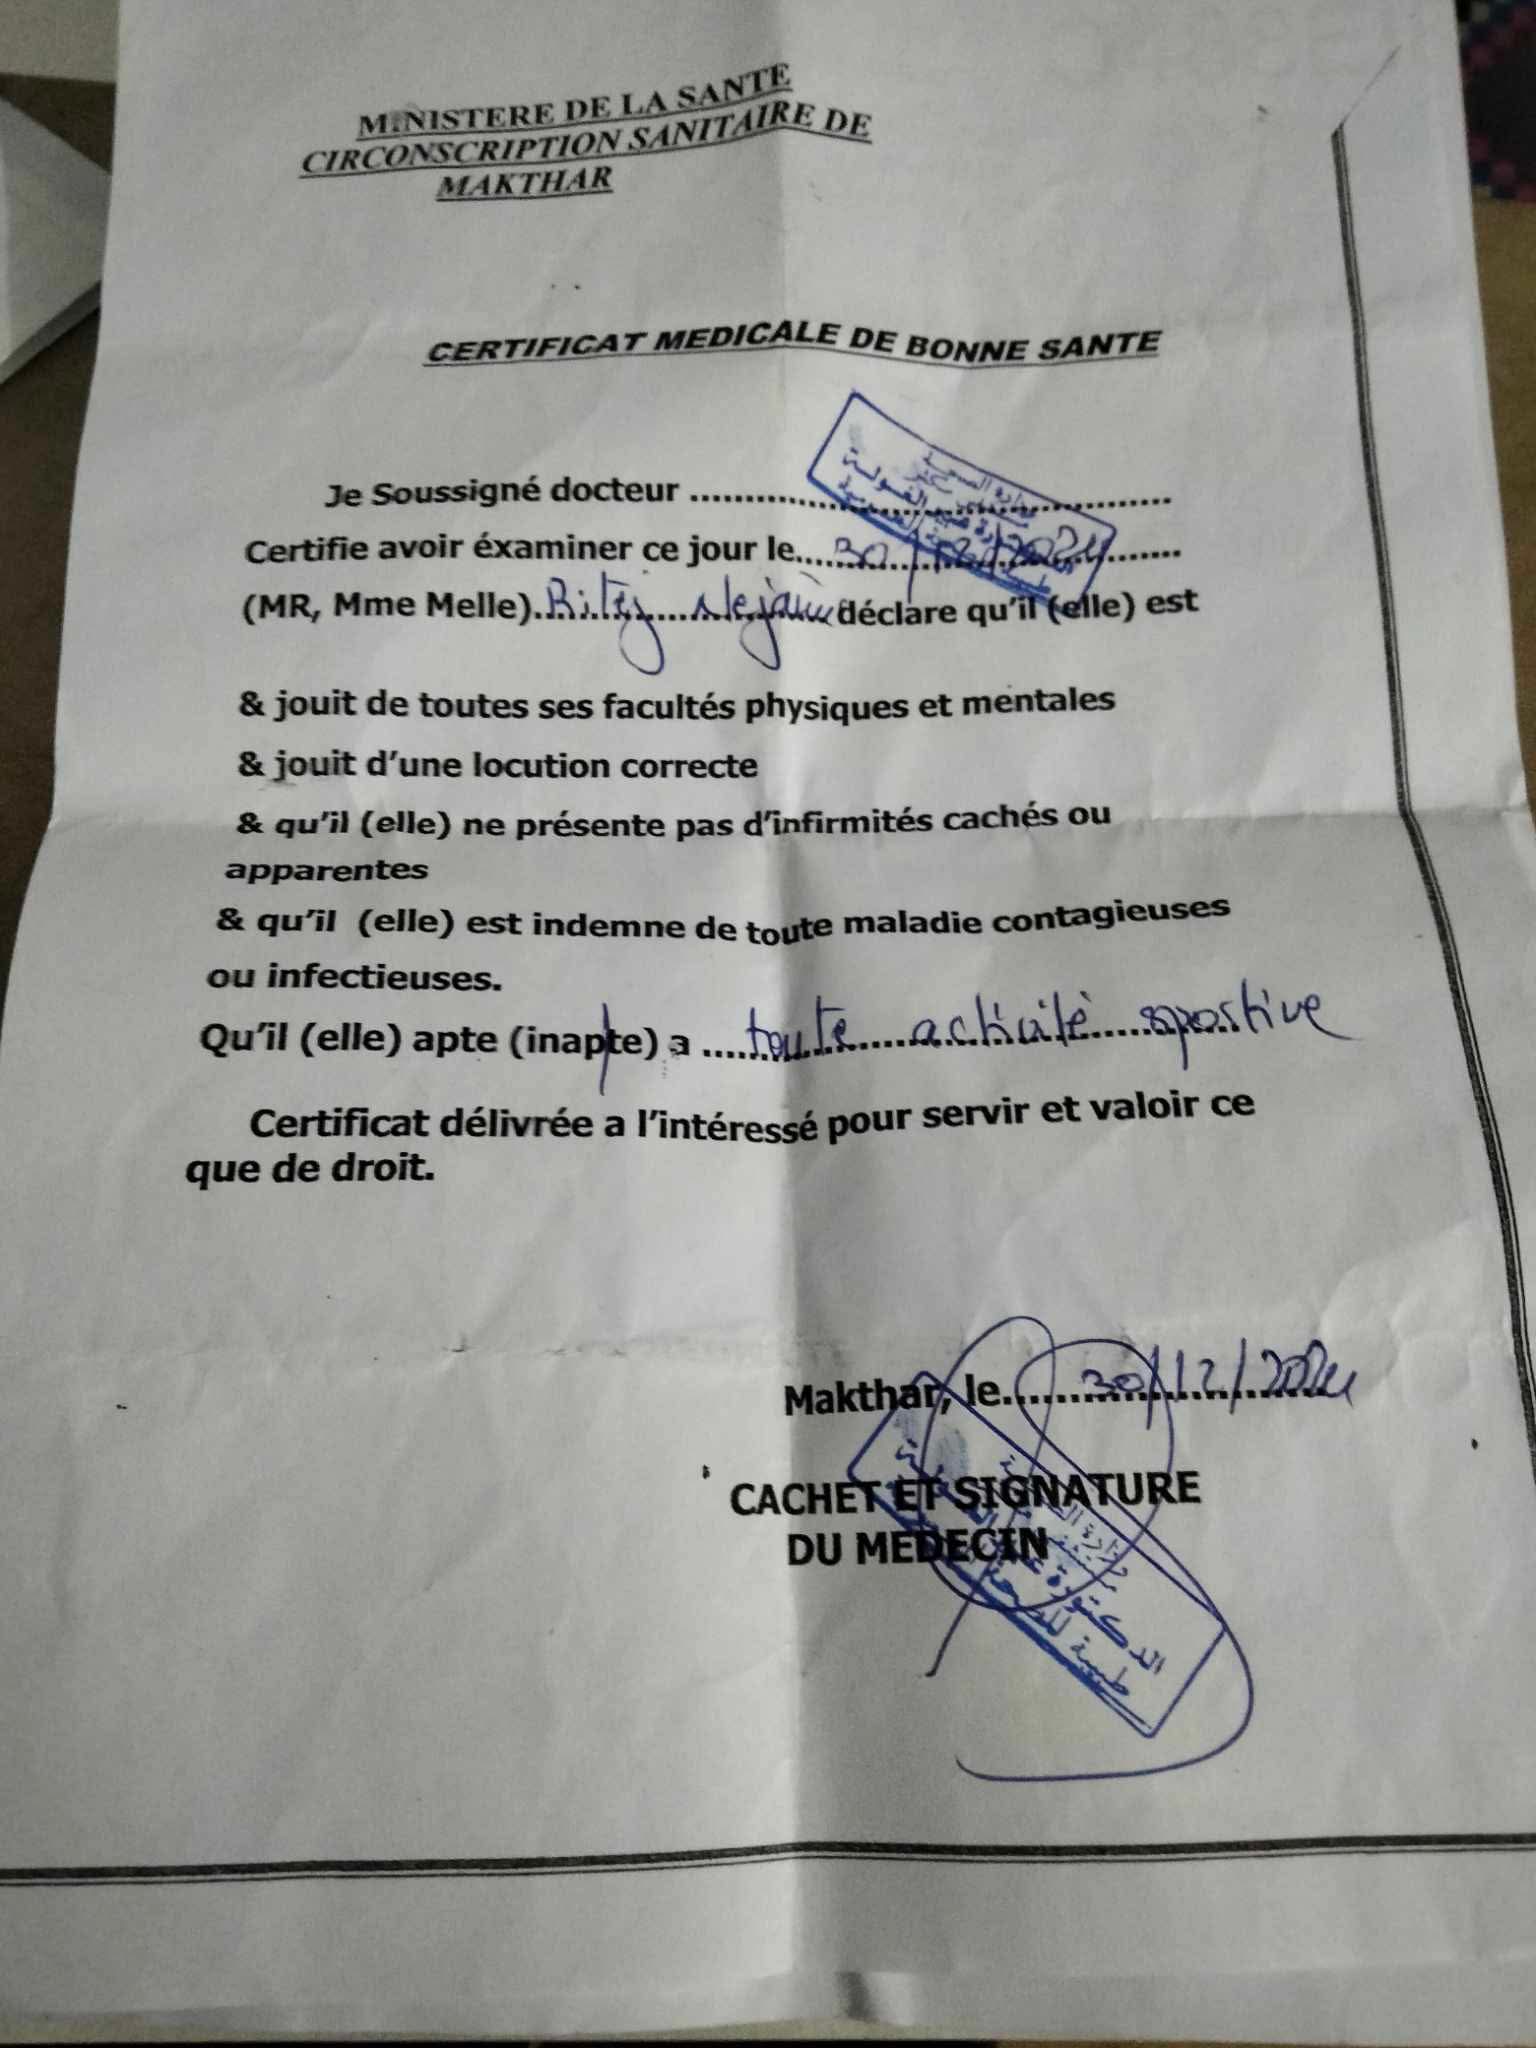 MINISTERE DE LA SANTE
CIRCONSCRIPTION SANITAIRE DE
MAKTHAR
CERTIFICAT MEDICALE DE BONNE SANTE
Je Soussigné docteur ................................................
Certifie avoir éxaminer ce jour le....30/12/2024........
(MR, Mme Melle).................déclare qu'il (elle) est
& jouit de toutes ses facultés physiques et mentales
& jouit d'une locution correcte
& qu'il (elle) ne présente pas d'infirmités cachés ou
apparentes
& qu'il (elle) est indemne de toute maladie contagieuses
ou infectieuses.
Qu'il (elle) apte (inapte) a ....toute activité sportive
Certificat délivrée a l'intéressé pour servir et valoir ce
que de droit.
Makthar, le......30/12/2024
CACHET ET SIGNATURE
DU MEDECIN
الدكتورة
طبيبة